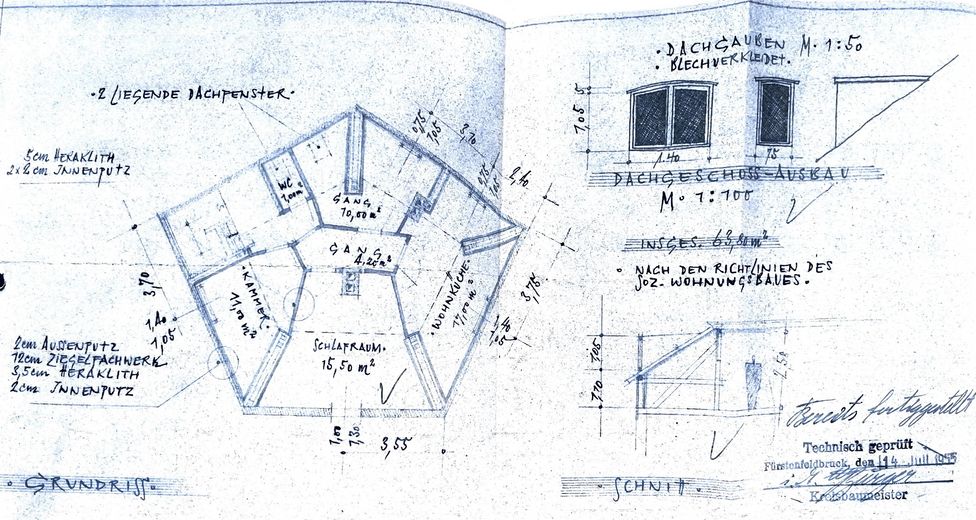 · DACHGAUBEN M· 1:50
· BLECHVERKLEIDET·
·2 LIEGENDE DACHFENSTER·
5cm HERAKLITH
2x2cm INNENPUTZ
1,05
1.40
75
DACHGESCHOSS-AUSBAU
M· 1:100
INSGES. 63,80m²
· NACH DEN RICHTLINIEN DES
SOZ-WOHNUNGSBAUES·
0,75
1,05
3,70
0,75
1,05
2,40
WC
1,00m²
GANG
10,00m²
GANG
4,20m²
·KAMMER·
11,00 m²
·WOHNKÜCHE·
17,00 m²
SCHLAFRAUM·
15,50 m²
3,70
1,40
1,05
3,75
1,40
1,05
1,00
1,30
3,55
2cm AUSSENPUTZ
12cm ZIEGELFACHWERK
3,5cm HERAKLITH
2cm INNENPUTZ
1,05
1,10
2,50
·GRUNDRISS·
·SCHNITT·
Bereits fertiggestellt
Technisch geprüft
Fürstenfeldbruck, den 14. Juli 1955
Kreisbaumeister